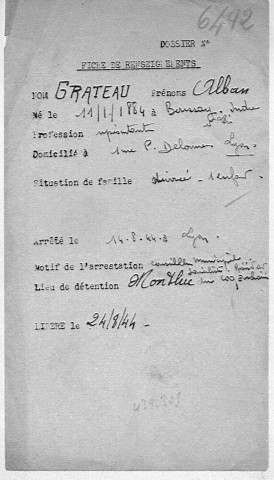 6492
DOSSIER N°
FICHE DE RENSEIGNEMENTS
NOM GRATEAU Prénoms Alban
Né le 11/1/1884 à Indre
Profession
Domicilié à 1 rue P. Delorme Lyon
Situation de famille divorcé - 1 enfant
Arrêté le 14-8-44 à Lyon
Motif de l'arrestation conseiller municipal
Lieu de détention Montluc
LIBERE le 24/8/44 -